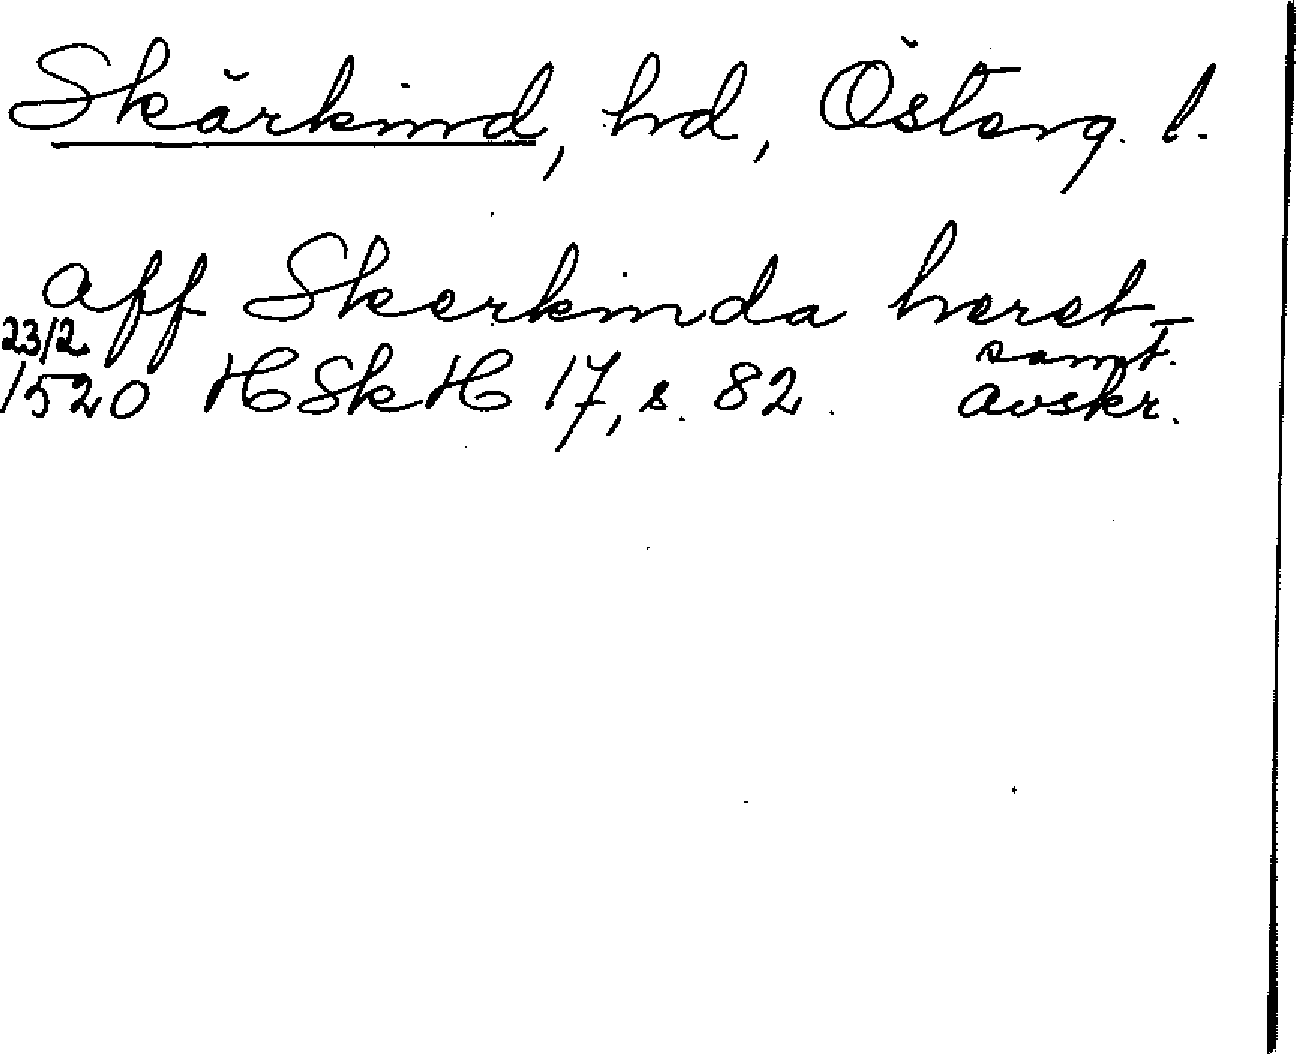 Skärkind, hd, Österg. l.
aff Skerkinda heret
23/2 samt.
1520 HSkH 17, s. 82. avskr.